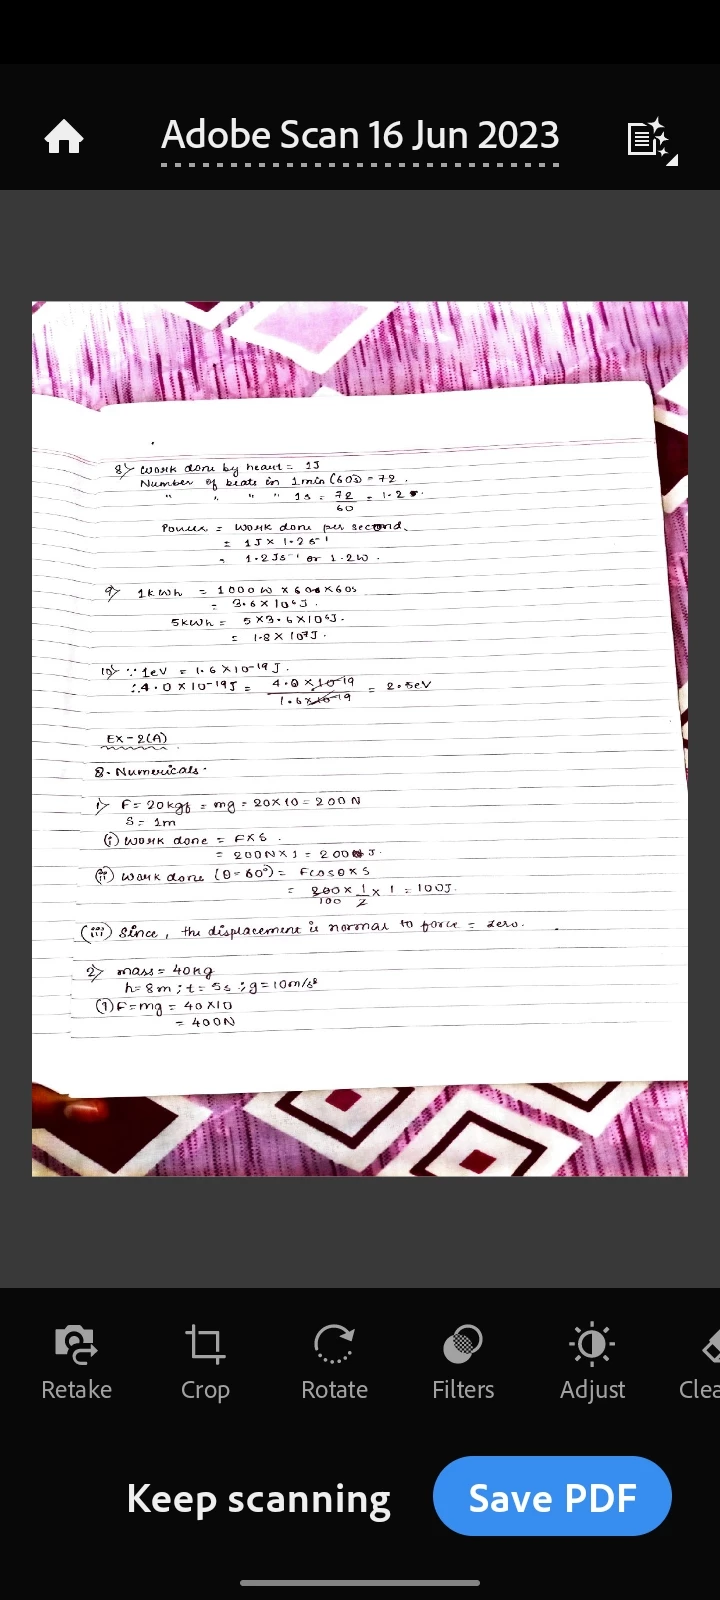 Adobe Scan 16 Jun 2023
8> Work done by heart = 1J
Number of beats in 1min (60s) = 72.
" " " " 1s = 72/60 = 1.2
Power = Work done per second.
= 1J x 1.2 s⁻¹
= 1.2 Js⁻¹ or 1.2W.
9> 1kWh = 1000W x 60 x 60s
= 3.6 x 10⁶J.
5kWh = 5 x 3.6 x 10⁶J.
= 1.8 x 10⁷J.
10> ∵ 1eV = 1.6 x 10⁻¹⁹J.
∴ 4.0 x 10⁻¹⁹J = 4.0 x 10⁻¹⁹ / 1.6 x 10⁻¹⁹ = 2.5eV
Ex-2(A)
8. Numericals.
1> F = 20kgf = mg = 20x10 = 200N
S = 1m
(i) Work done = FxS.
= 200N x 1 = 200 J.
(ii) Work done (θ = 60°) = Fcosθ x S
= 200 x 1/2 x 1 = 100J.
100
(iii) Since, the displacement is normal to force = zero.
2> mass = 40kg
h = 8m ; t = 5s ; g = 10m/s²
(1) F = mg = 40x10
= 400N
Retake Crop Rotate Filters Adjust Clea
Keep scanning Save PDF